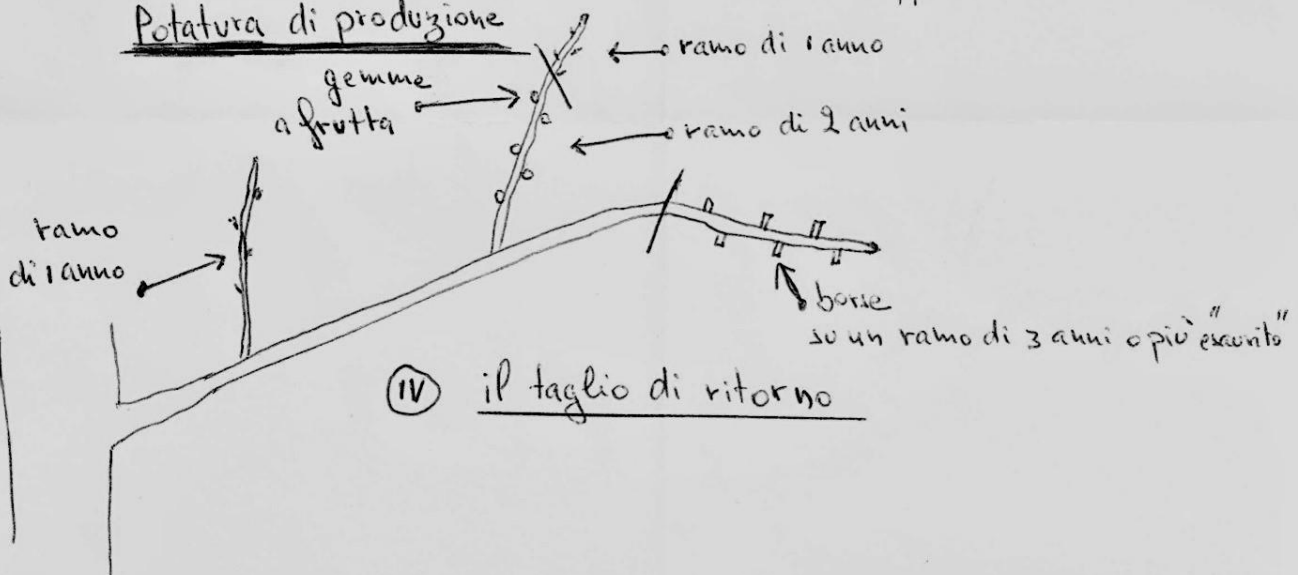 Potatura di produzione
ramo di 1 anno
gemme
a frutta
ramo di 2 anni
ramo
di 1 anno
borse
su un ramo di 3 anni o più "esaurito"
IV il taglio di ritorno